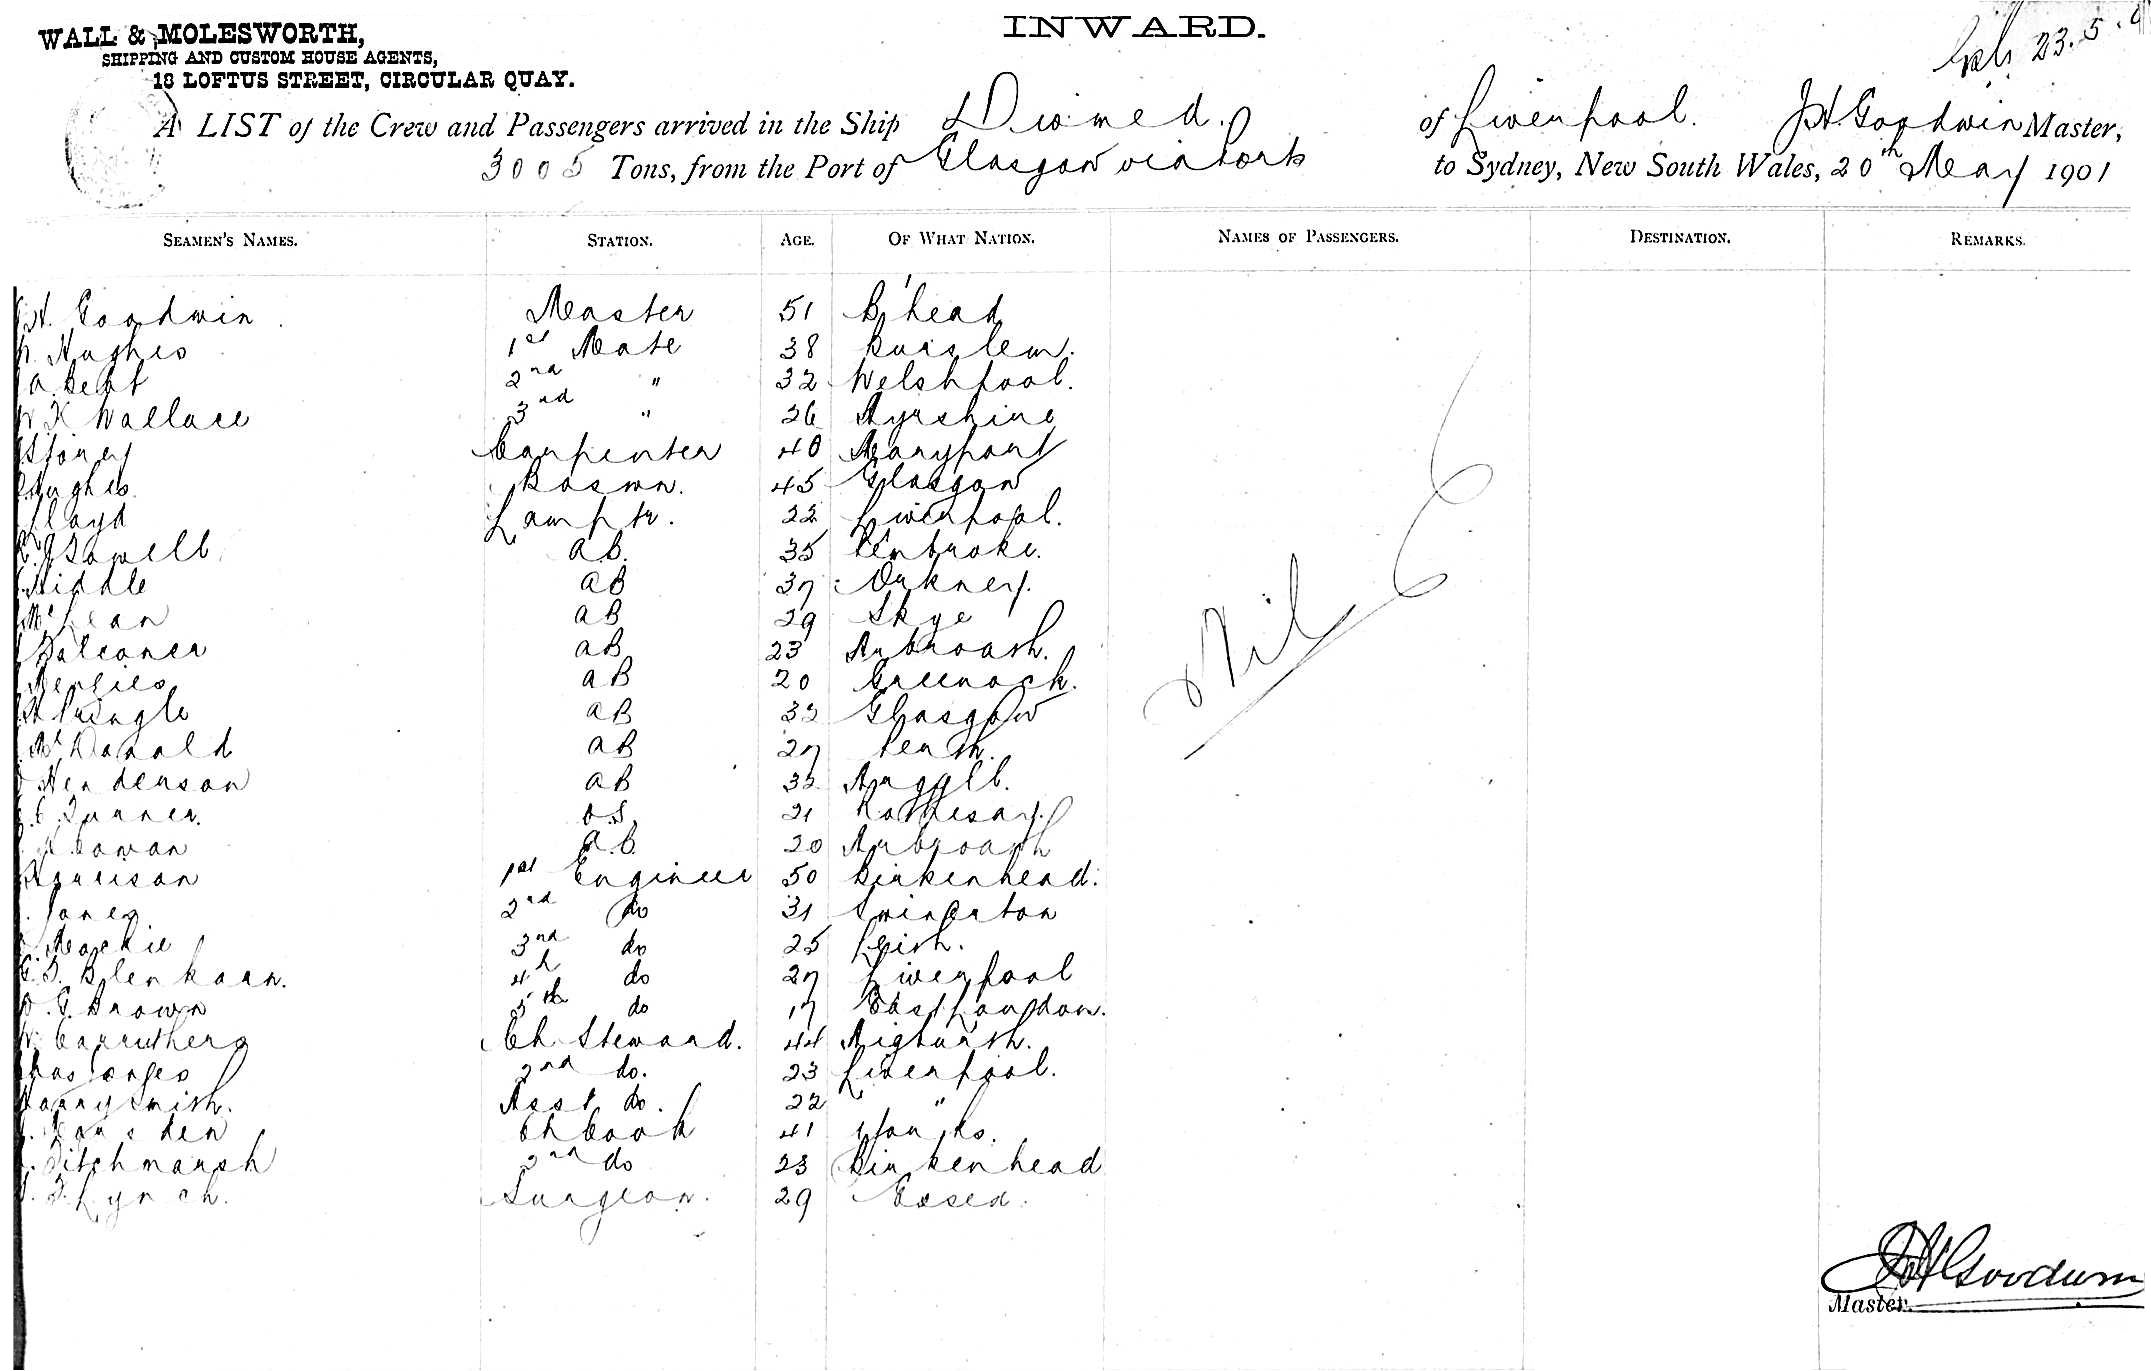 WALL & MOLESWORTH,
SHIPPING AND CUSTOM HOUSE AGENTS,
18 LOFTUS STREET, CIRCULAR QUAY.
INWARD.
23.5.
A LIST of the Crew and Passengers arrived in the Ship Diomed. of Liverpool. JH Goodwin Master,
3005 Tons, from the Port of Glasgow via Ports to Sydney, New South Wales, 20th May 1901
SEAMEN'S NAMES. STATION. AGE. OF WHAT NATION. NAMES OF PASSENGERS. DESTINATION. REMARKS.
H. Goodwin Master 51 B'head
Hughes 1st Mate 38 Burslem.
2nd " 32 Welshpool.
W. K Wallace 3rd " 26 Ayrshire
Storey Carpenter 40 Maryport
Hughes Boswn. 45 Glasgow
Lloyd Lamptr. 22 Liverpool.
AB. 35 Pembroke.
Riddle AB 37 Orkney.
McLean AB 29 Skye
Falconer AB 23 Arbroath.
Menzies AB 20 Greenock.
H Pringle AB 33 Glasgow
McDonald AB 27 Perth.
Henderson AB 33 Argyll.
C Turner. O.S. 21 Rothesay.
Cowan A.B. 20 Arbroath
Harrison 1st Engineer 50 Birkenhead.
Jones 2nd do 31
Mackie 3rd do 25 Leith.
Blenkarn. 4th do 27 Liverpool
G. Brown 5th do 17 East London.
W. Carruthers Ch Steward. 44 Aigburth.
2nd do. 23 Liverpool.
Harry Smith. Asst do. 22 "
Ch Cook 41 Yorks.
Titchmarsh 2nd do 23 Birkenhead
T. Lynch. Surgeon. 29 Essex.
Nil
JH Goodwin
Master.